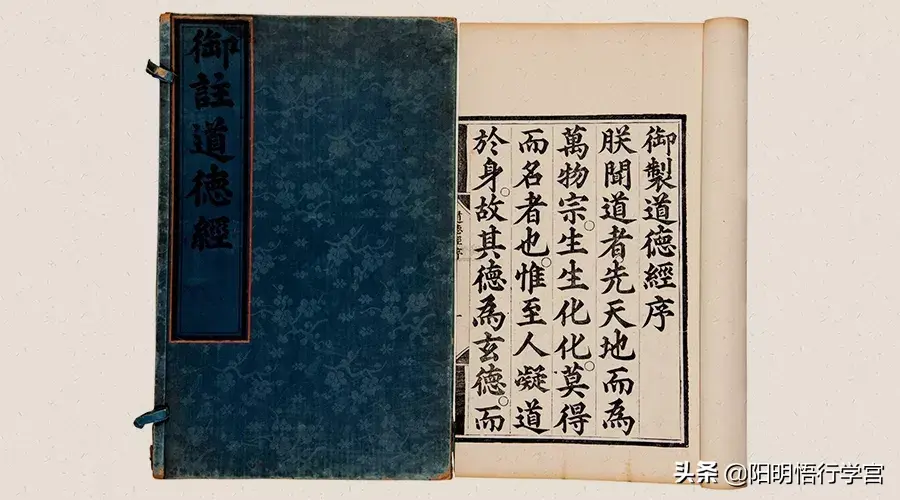 御註道德經
御製道德經序
朕聞道者先天地而為
萬物宗。生生化化。莫得
而名者也。惟至人凝道
於身。故其德為玄德。而
头条 @阳明悟行学宫